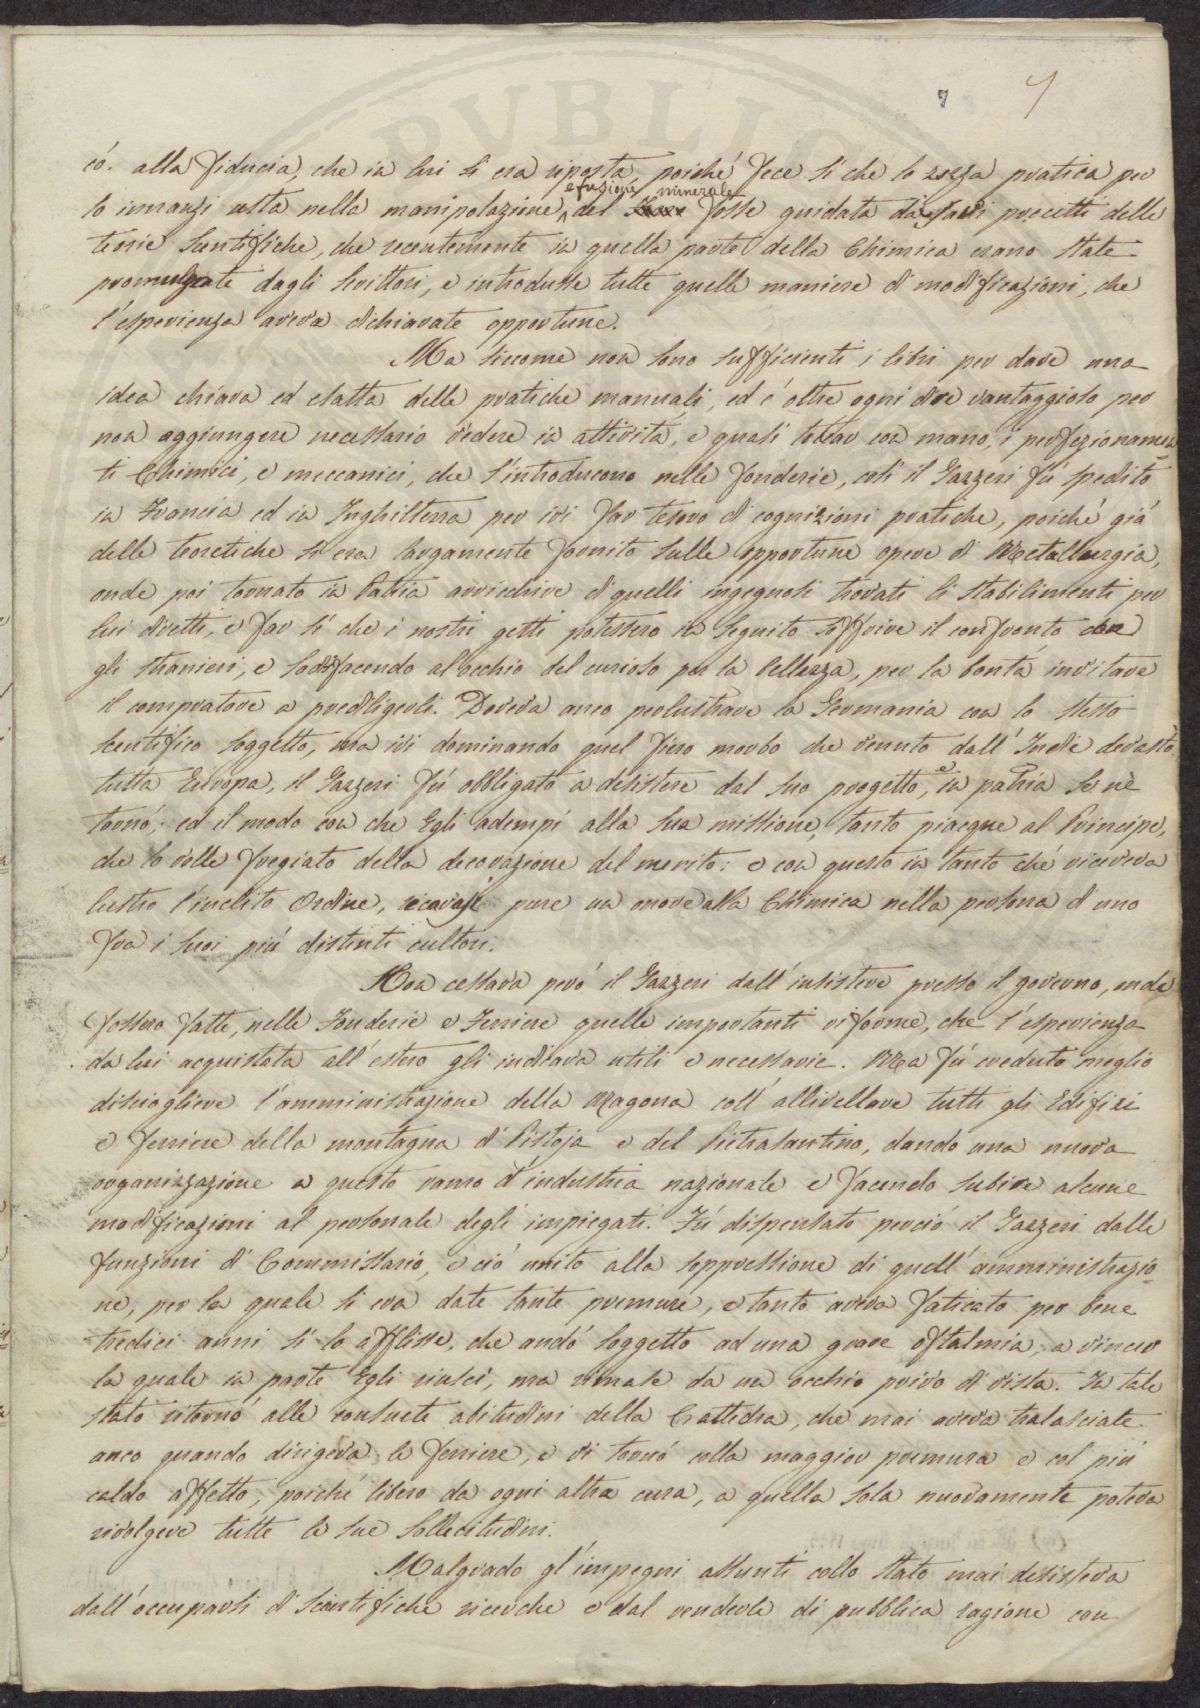 7
7
có. alla fiducia, che in lui si era riposta, poiché fece sí che la rozza pratica per
efusione minerale
lo innanzi usta nella manipolazione del fosse guidata dai savi precetti delle
teorie Scentifiche, che recentemente in quella parte della Chimica erano state
promulgate dagli Scrittori, e introdusse tutte quelle maniere di modificazioni, che
l'esperienza aveva dichiarate opportune.
Ma siccome non sono sufficienti i libri per dare una
idea chiara ed esatta delle pratiche manuali, ed é oltre ogni dire vantaggioso per
non aggiungere necessario vedere in attività, e quasi toccar con mano, i perfezionamen
ti Chimici, e meccanici, che s'introducono nelle fonderie, cosí il Gazzeri fú spedito
in Francia ed in Inghilterra per ivi far tesoro di cognizioni pratiche, poiché giá
delle teoretiche si era largamente fornito sulle opportune opere di Metallurgia,
onde poi tornato in Patria arricchire di quelli ingegnosi trovati li stabilimenti per
lui diretti, e far sí che i nostri getti potessero in seguito soffrire il confronto con
gli stranieri, e sodisfacendo al'occhio del curioso per la bellezza, per la bontá invitare
il compratore a prediligerli. Doveva anco perlustrare la Germania con lo stesso
scentifico soggetto, ma ivi dominando quel fiero morbo che venuto dall'Indie devastò
tutta Europa, il Gazzeri fú obbligato a desistere dal suo progetto, e in patria se nè
tornó; ed il modo con che Egli adempí alla sua missione, tanto piacque al Principe,
che lo volle fregiato della decorazione del merito: e con questo in tanto ché riceveva
lustro l'inclito Ordine, recavasi pure un onore alla Chimica nella persona d'uno
fra i suoi piú distinti cultori.
Non cessava peró il Gazzeri dall'insistere presso il governo, onde
fossero fatte, nelle Fonderie e Ferriere quelle importanti riforme, che l'esperienza
da lui acquistata all'estero gli indicava utili e necessarie. Ma fú creduto meglio
disciogliere l'amministrazione della Magona coll'allivellare tutti gli Edifizi
e ferriere della montagna di Pistoja e del Pietrasantino, dando una nuova
organizzazione a questo ramo d'industria nazionale e facendo subire alcune
modificazioni al personale degli impiegati. Fú dispensato perció il Gazzeri dalle
funzioni di Commissario, e ció unito alla soppressione di quell'amministrazio
ne, per la quale si era date tante premure, e tanto aveva faticato per bene
tredici anni sì lo afflisse, che andó soggetto ad una grave oftalmia, a vincer
la quale in parte Egli riuscí, ma rimase da un occhio privo di vista. In tale
stato ritornó alle consuete abitudini della Cattedra, che mai aveva tralasciate
anco quando dirigeva le ferriere, e vi tornó colla maggior premura e col piú
caldo affetto, poiché libero da ogni altra cura, a quella sola nuovamente poteva
rivolgere tutte le sue sollecitudini.
Malgrado gl'impegni assunti collo Stato mai desisteva
dall'occuparsi di Scentifiche ricerche e dal renderle di pubblica ragione con